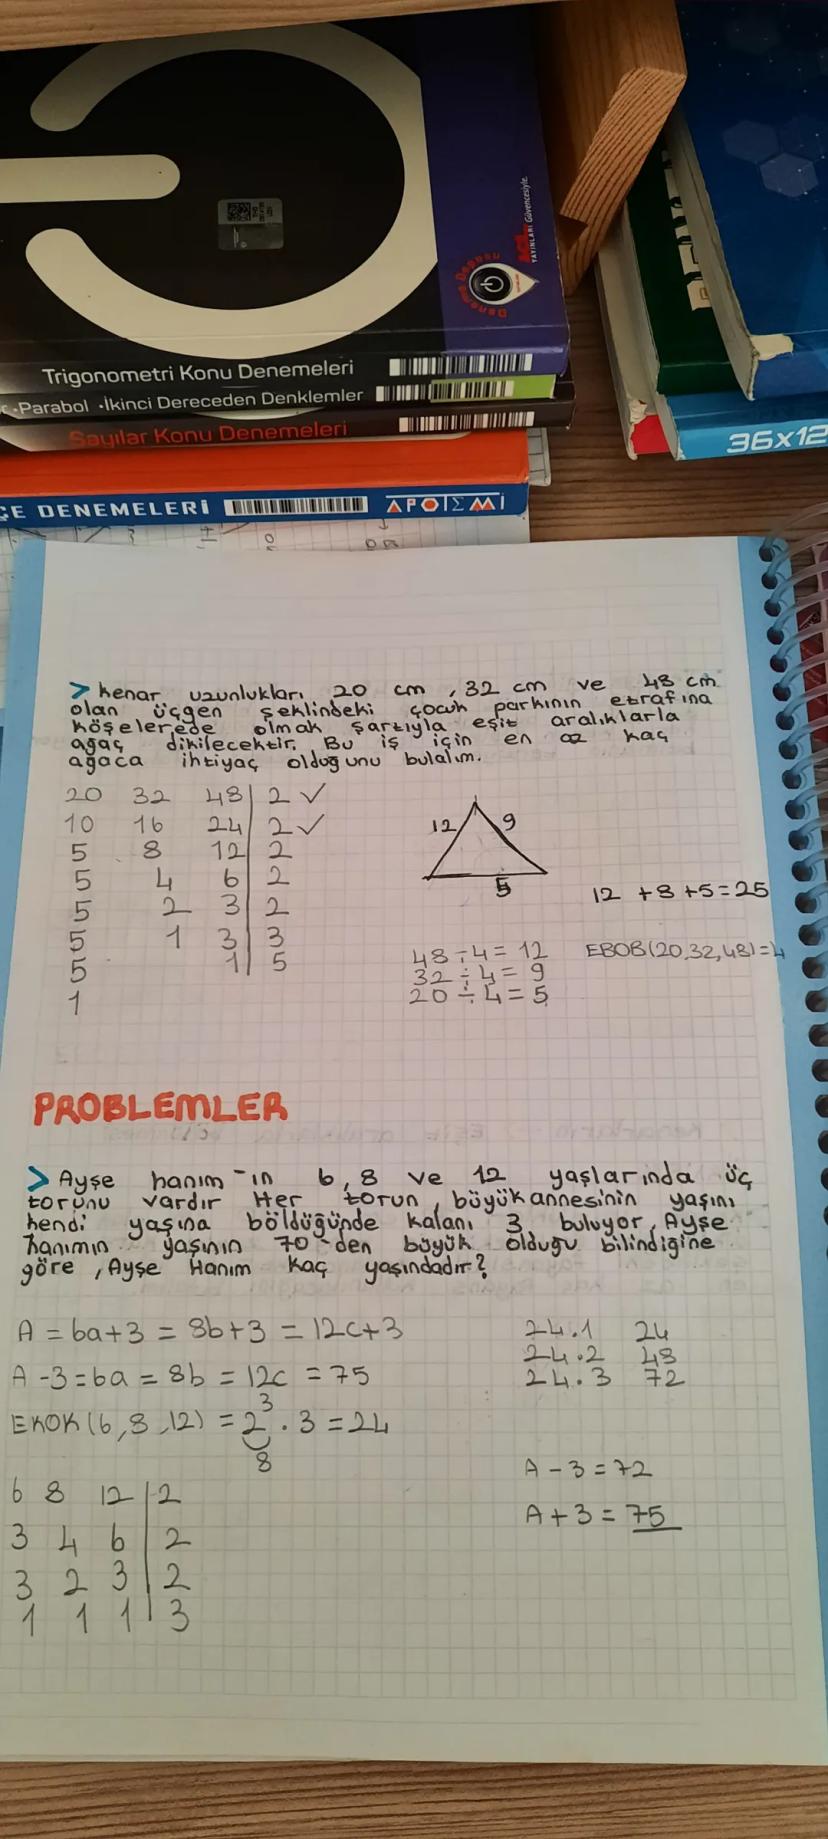 ACİL
YAYINLARI Güvencesiyle.
Deneme Deposu
Trigonometri Konu Denemeleri
Parabol · İkinci Dereceden Denklemler
Sayılar Konu Denemeleri
ÇE DENEMELERİ
APOTEMİ
36x12
> kenar uzunlukları 20 cm , 32 cm ve 48 cm
olan üçgen şeklindeki çocuk parkının etrafına
köşelerede olmak şartıyla eşit aralıklarla
ağaç dikilecektir. Bu iş için en az kaç
ağaca ihtiyaç olduğunu bulalım.
20 32 48 | 2 ✓
10 16 24 | 2 ✓
5 8 12 | 2
5 4 6 | 2
5 2 3 | 2
5 1 3 | 3
5 1 | 5
1
12 9
5
12 + 8 + 5 = 25
48 ÷ 4 = 12
32 ÷ 4 = 9
20 ÷ 4 = 5
EBOB(20,32,48)=4
PROBLEMLER
> Ayşe hanım-ın 6, 8 ve 12 yaşlarında üç
torunu vardır Her torun, büyükannesinin yaşını
kendi yaşına böldüğünde kalanı 3 buluyor, Ayşe
hanımın yaşının 70-den büyük olduğu bilindiğine
göre , Ayşe Hanım kaç yaşındadır?
A = 6a+3 = 8b+3 = 12c+3
A -3 = 6a = 8b = 12c = 75
EKOK (6,8,12) = 2³ . 3 = 24
8
6 8 12 | 2
3 4 6 | 2
3 2 3 | 2
1 1 1 | 3
24.1 24
24.2 48
24.3 72
A - 3 = 72
A + 3 = 75